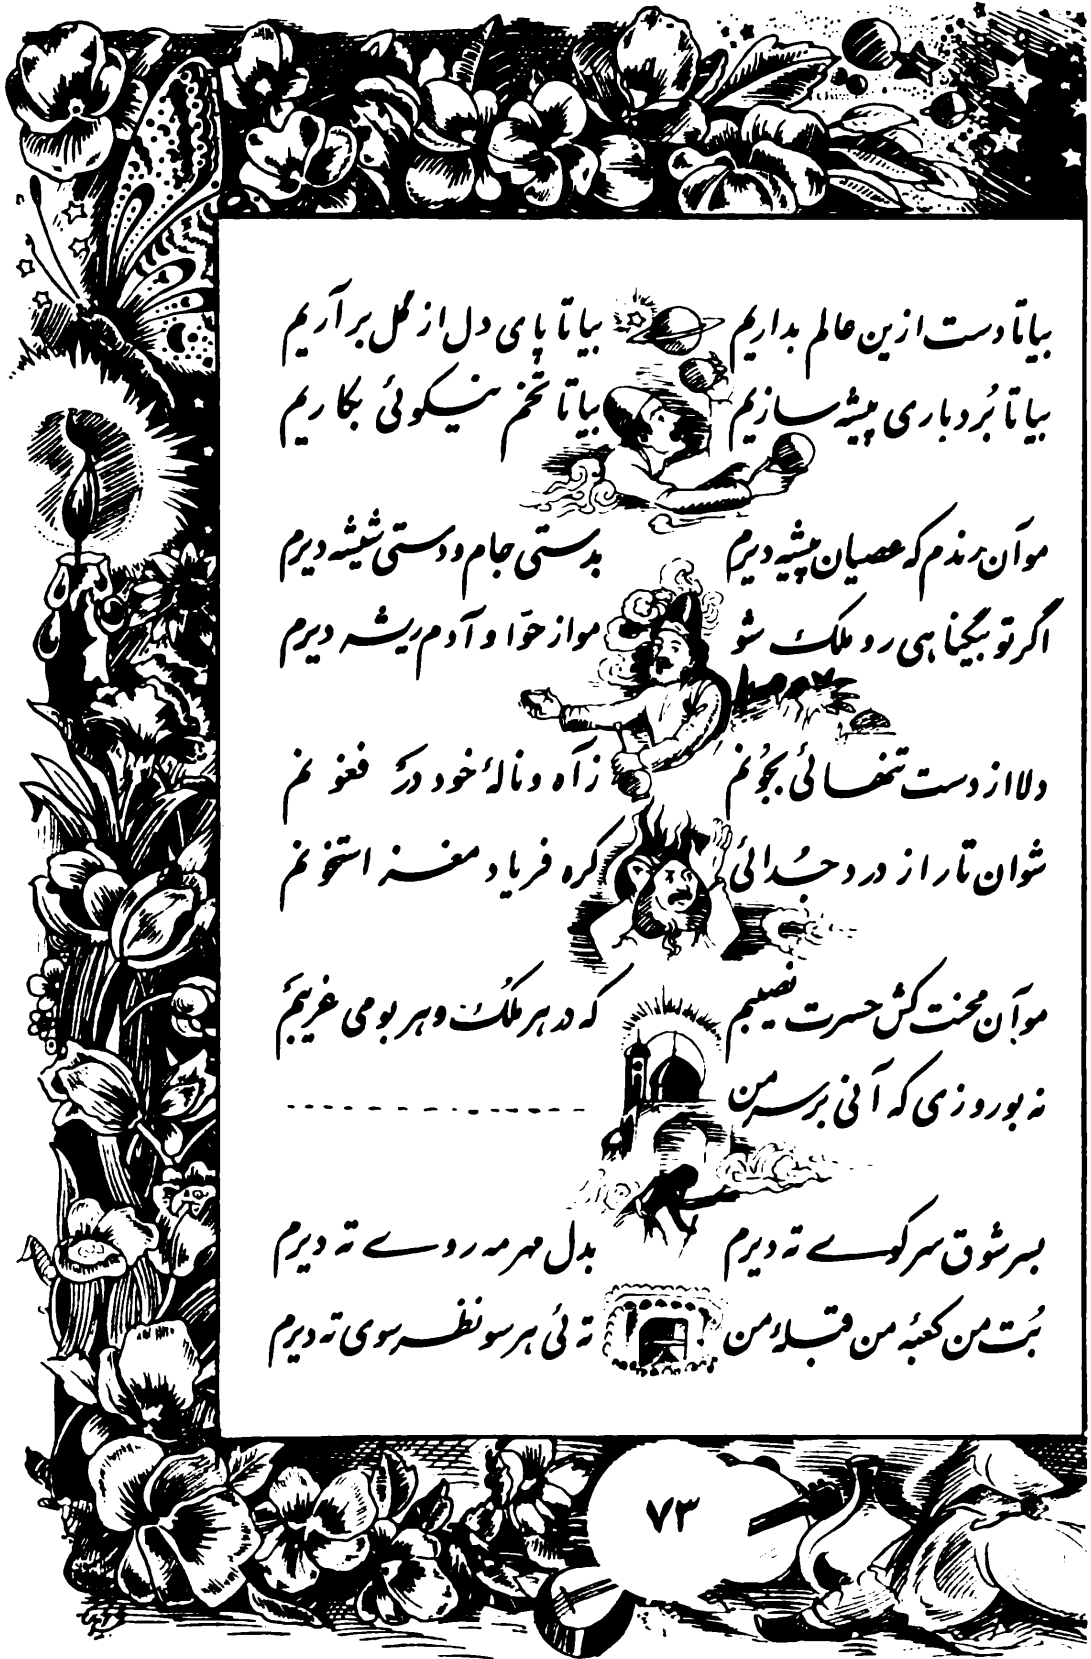 بیا تا دست ازین عالم بداریم بیا تا پای دل از گل برآریم
بیا تا بُردباری پیشه سازیم بیا تا تخم نیکوئی بکاریم
مو آن رندم که عصیان پیشه دیرم بدستی جام و دستی شیشه دیرم
اگر تو بیگناهی رو ملک شو مو از حوّا و آدم ریشه دیرم
دلا از دست تنهائی بجُونم ز آه و نالهٔ خود در فغونم
شوان تار از درد جُدائی کره فریاد مغز استخونم
مو آن محنت کش حسرت نصیبم که در هر ملُک و هر بومی غریبم
نه بو روزی که آئی بر سر من
بسر شوق سر کوے ته دیرم بدل مهر مه روے ته دیرم
بُت من کعبهٔ من قبلهٔ من ته ئی هر سو نظر سوی ته دیرم
۷۳